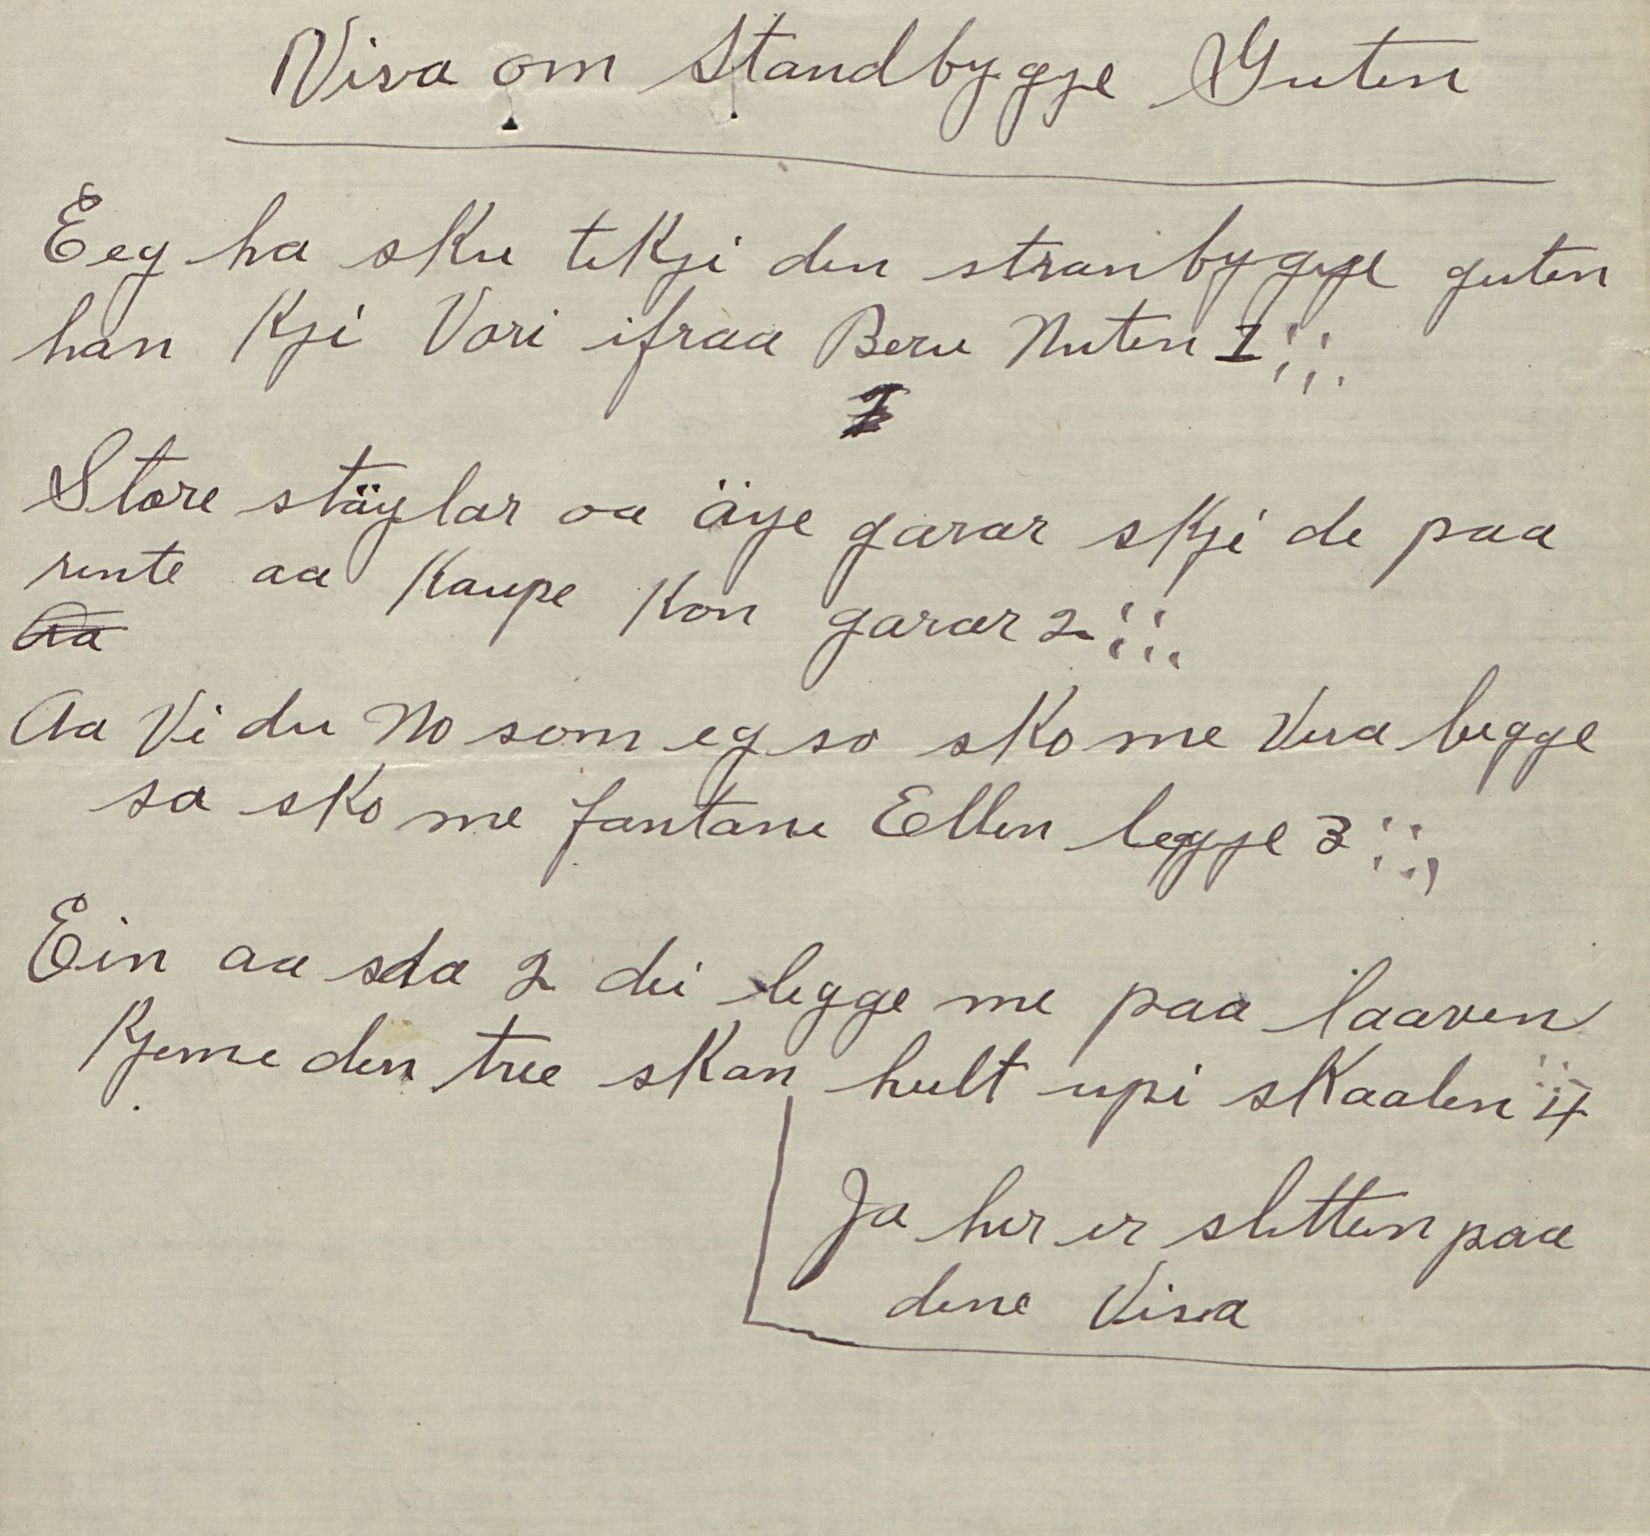 Visa om Standbygge Guten
Eeg ha sku tekji den stranbygge guten
han Kji Vori ifraa Beru Nuten 1 ;;;.
Store stäylar oa äye garar skji de paa
rente aa Kaupe Kon garar 2 ;;;.
Aa
Aa Vi du No som eg so sko me Vera begge
sa sko me fantane Ellen legge 3 ;;;
Ein aa sda 2 dei legge me paa laaven
Kjeme den tree skan hult upi skaalen 4
Ja her er sletten paa
dene Visa